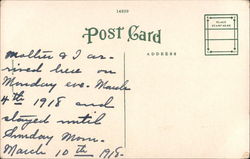 14659
Post Card
ADDRESS
PLACE
STAMP HERE
Mother & I ar-
rived here on
Monday eve. March
4th 1918 and
stayed until
Sunday Morn.
March 10th 1918-